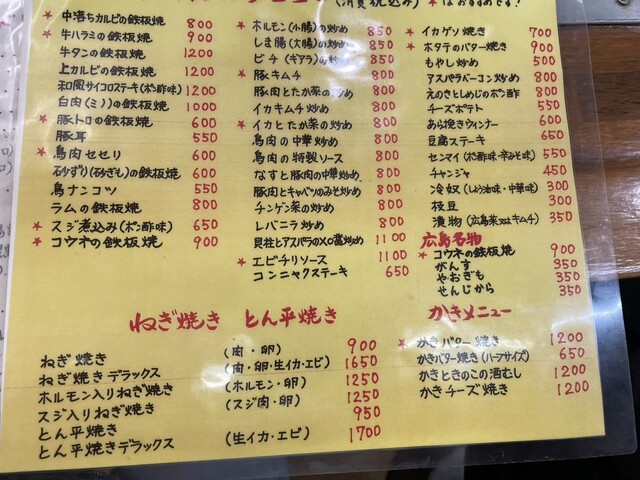 (消費税込み) ★はおすすめです!
★ 中落ちカルビの鉄板焼 800
★ 牛ハラミの鉄板焼 900
牛タンの鉄板焼 1200
上カルビの鉄板焼 1200
和風サイコロステーキ(ポン酢味) 1200
白肉(ミノ)の鉄板焼 1000
★ 豚トロの鉄板焼 600
豚耳 550
★ 鳥肉セセリ 600
砂ずり(砂ぎも)の鉄板焼 600
鳥ナンコツ 550
ラムの鉄板焼 800
★ スジ煮込み(ポン酢味) 650
★ コウネの鉄板焼 900
★ ホルモン(小腸)の炒め 850
しま腸(大腸)の炒め 850
ビチ(ギアラ)の炒め 850
★ 豚キムチ 800
豚肉とたか菜の炒め 800
イカキムチ炒め 800
★ イカとたか菜の炒め 800
鳥肉の中華炒め 800
鳥肉の特製ソース 800
なすと豚肉の中華炒め 800
豚肉とキャベツのみそ炒め 800
チンゲン菜の炒め 800
レバニラ炒め 800
貝柱とアスパラのXO醤炒め 1100
★ エビチリソース 1100
コンニャクステーキ 650
★ イカゲソ焼き 700
★ ホタテのバター焼き 900
もやし炒め 500
アスパラベーコン炒め 800
えのきとしめじのポン酢 800
チーズポテト 550
あら挽きウィンナー 600
豆腐ステーキ 650
センマイ(ポン酢味・辛みそ味) 550
チャンジャ 450
冷奴(しょう油味・中華味) 300
枝豆 300
漬物(広島菜又はキムチ) 350
広島名物
★ コウネの鉄板焼 900
がんす 350
やおぎも 350
せんじがら 350
ねぎ焼き とん平焼き
ねぎ焼き (肉・卵) 900
ねぎ焼きデラックス (肉・卵・生イカ・エビ) 1650
ホルモン入りねぎ焼き (ホルモン・卵) 1250
スジ入りねぎ焼き (スジ肉・卵) 1250
とん平焼き 950
とん平焼きデラックス (生イカ・エビ) 1700
かきメニュー
★ かきバター焼き 1200
かきバター焼き(ハーフサイズ) 650
かきときのこの酒むし 1200
かきチーズ焼き 1200